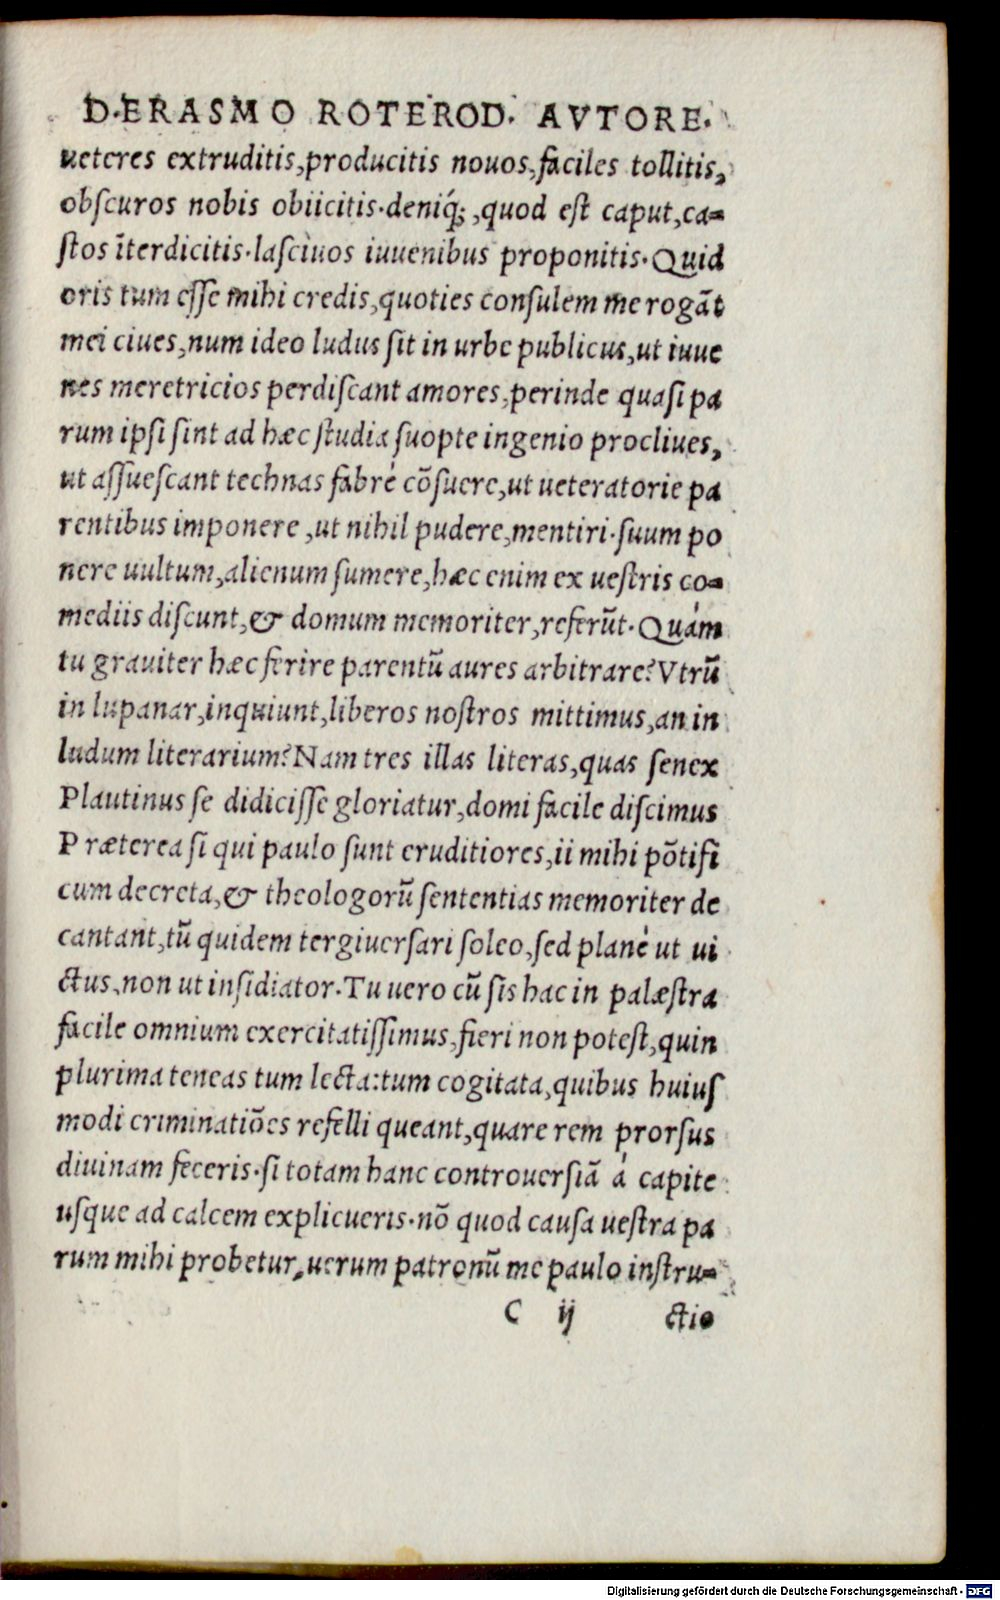 D.ERASMO ROTEROD. AVTORE.
ueteres extruditis,producitis nouos,faciles tollitis,
obſcuros nobis obiicitis.deniq́; ,quod eſt caput,ca-
ſtos ĩterdicitis.laſciuos iuuenibus proponitis.Quid
oris tum eſſe mihi credis,quoties conſulem me rogãt
mei ciues,num ideo ludus ſit in urbe publicus,ut iuue
nes meretricios perdiſcant amores,perinde quaſi pa
rum ipſi ſint ad hæc ſtudia ſuopte ingenio procliues,
ut aſſueſcant technas fabré cõſuere,ut ueteratorie pa
rentibus imponere ,ut nihil pudere,mentiri.ſuum po
nere uultum,alienum ſumere,hæc enim ex ueſtris co-
mediis diſcunt,& domum memoriter,referũt.Quám
tu grauiter hæc ferire parentũ aures arbitrare?Vtrũ
in lupanar,inquiunt,liberos noſtros mittimus,an in
ludum literarium?Nam tres illas literas,quas ſenex
Plautinus ſe didiciſſe gloriatur,domi facile diſcimus
Præterea ſi qui paulo ſunt eruditiores,ii mihi põtifi
cum decreta,& theologorũ ſententias memoriter de
cantant,tũ quidem tergiuerſari ſoleo,ſed plané ut ui
ctus,non ut inſidiator.Tu uero cũ ſis hac in palæſtra
facile omnium exercitatiſſimus,fieri non poteſt,quin
plurima teneas tum lecta:tum cogitata,quibus huiuſ
modi criminatiões refelli queant,quare rem prorſus
diuinam feceris.ſi totam hanc controuerſiã á capite
uſque ad calcem explicueris.nõ quod cauſa ueſtra pa
rum mihi probetur,uerum patronũ me paulo inſtru-
C ij ctio
Digitalisierung gefördert durch die Deutsche Forschungsgemeinschaft - DFG